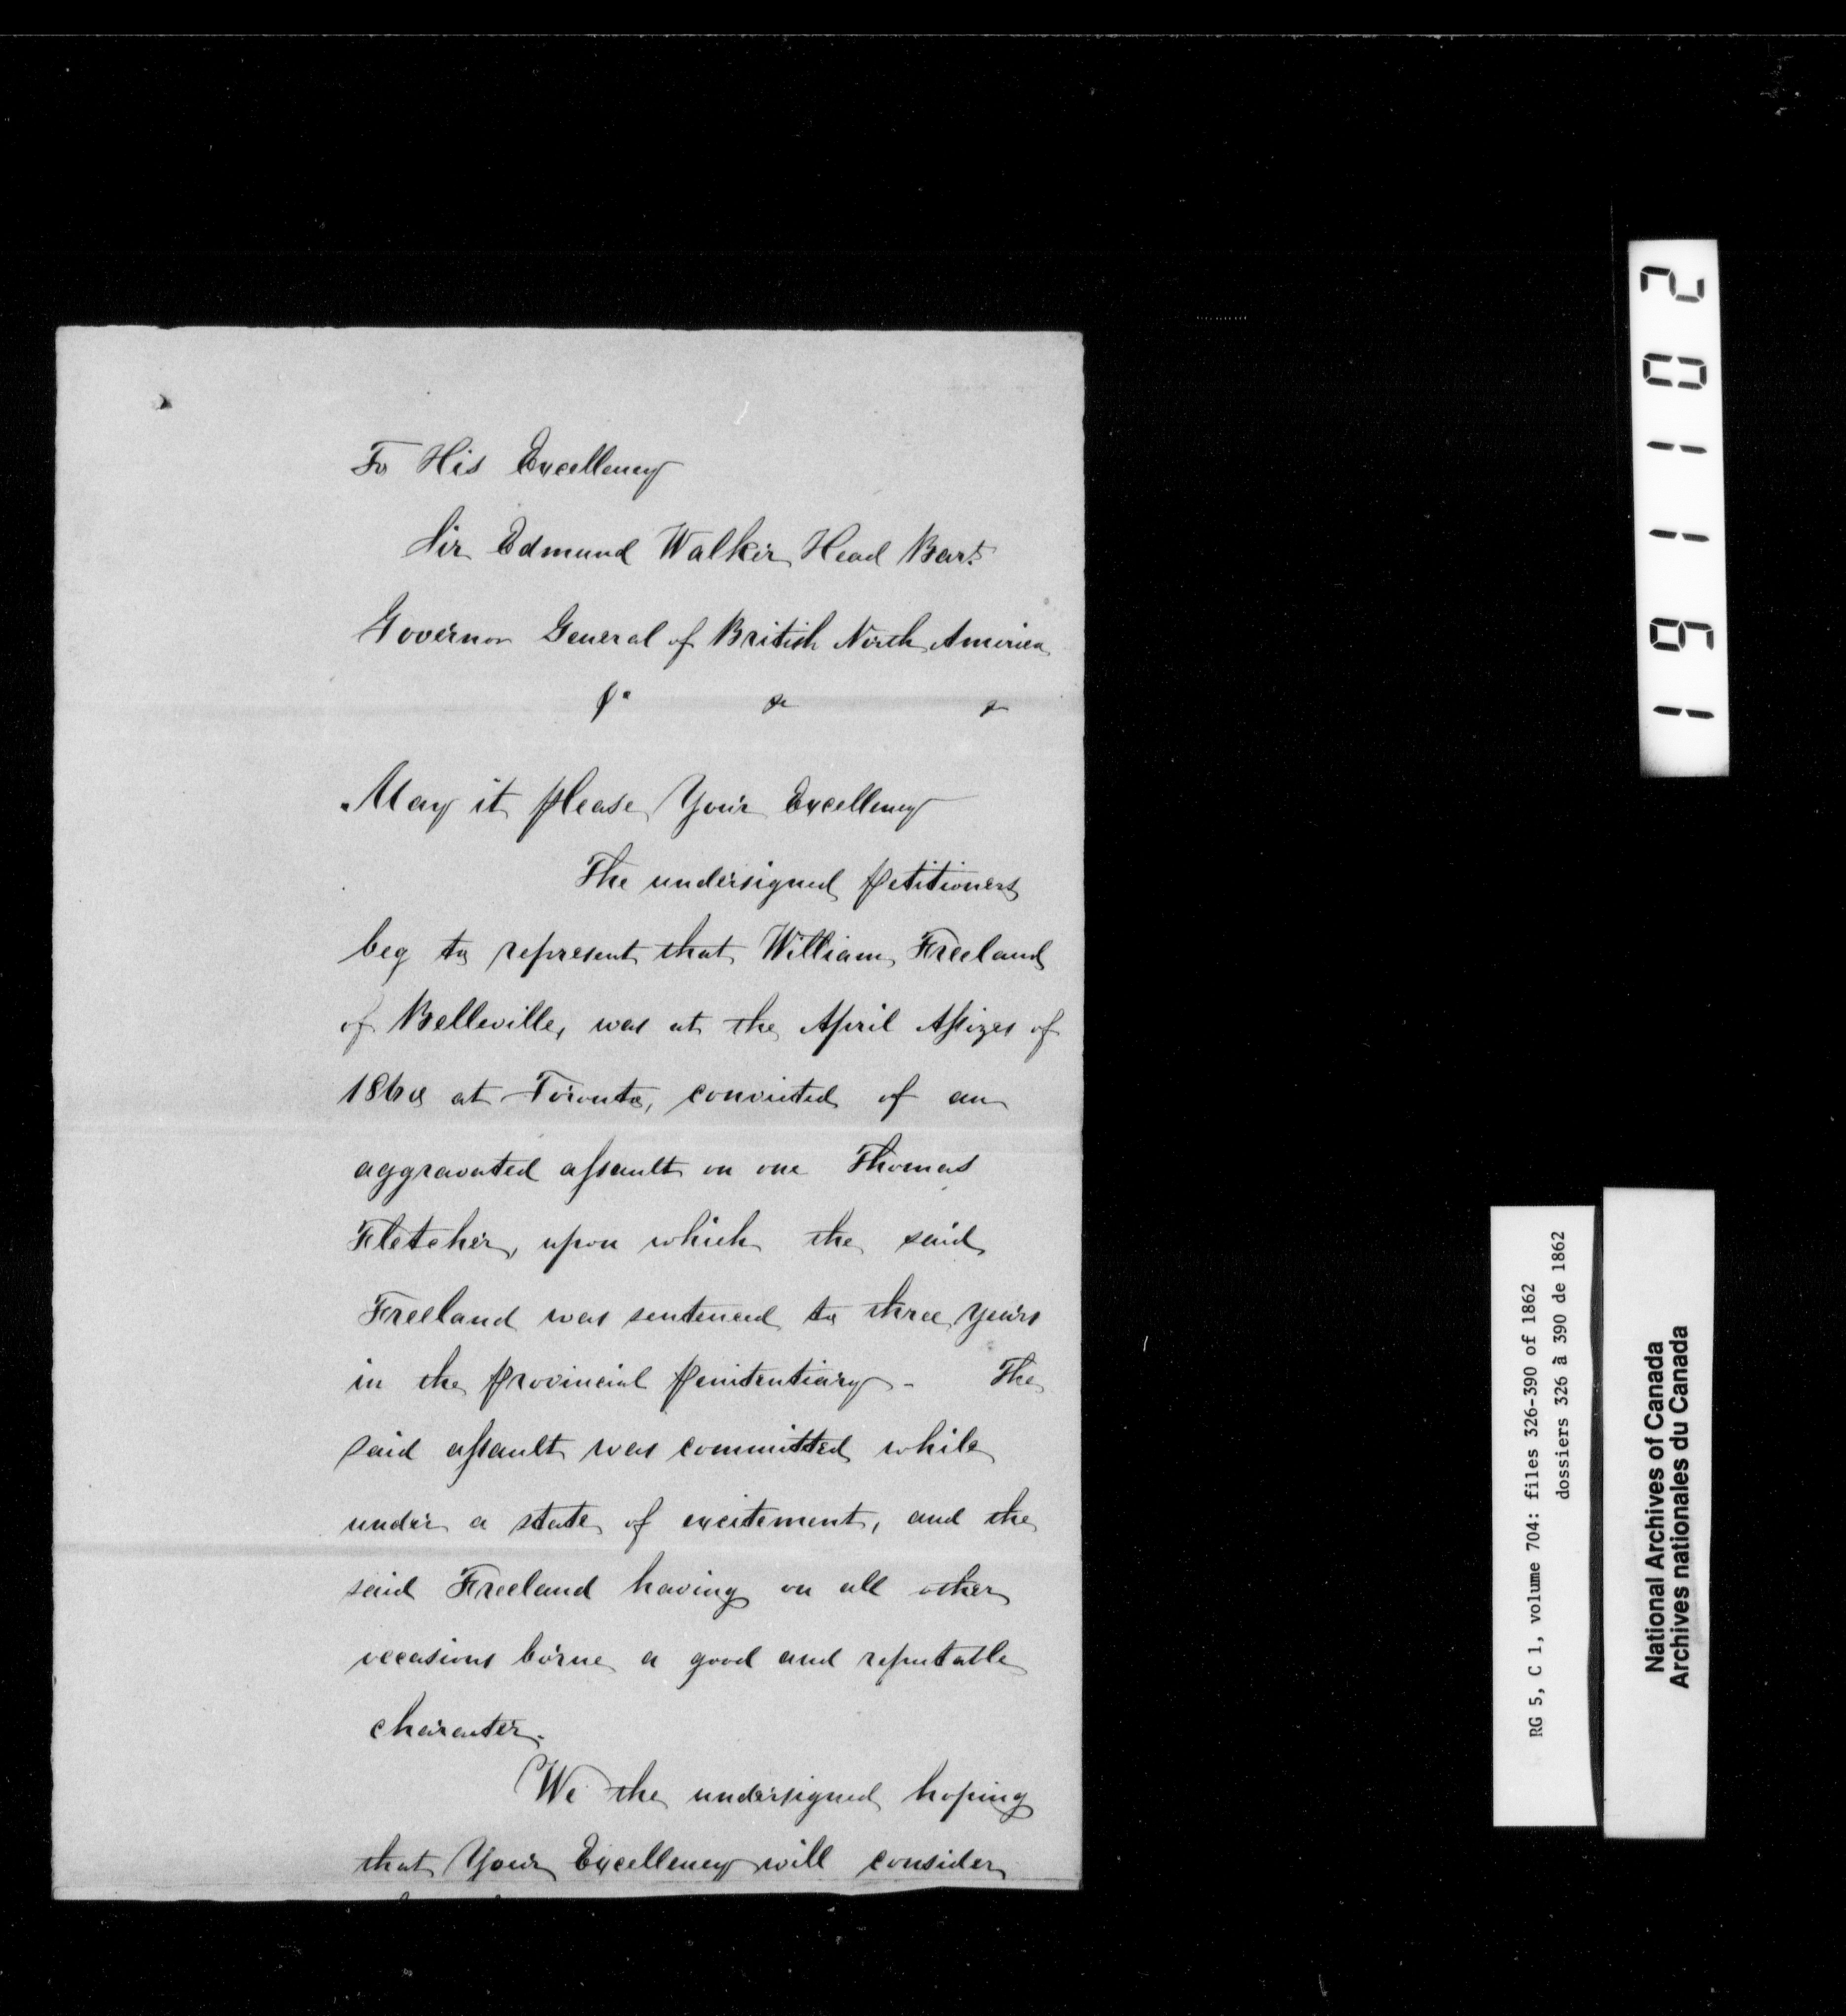 To His Excellency
Sir Edmund Walker Head Bart
Governor General of British North America
&c & &
May it please Your Excellency
The undersigned petitioners
beg to represent that William Freeland
of Belleville, was at the April Assizes of
1860 at Toronto, convicted of an
aggravated assault on one Thomas
Fletcher, upon which the said
Freeland was sentenced to three years
in the Provincial Penitentiary - The
said assault was committed while
under a state of excitement, and the
said Freeland having on all other
occasions borne a good and reputable
character.
We the undersigned hoping
that Your Excellency will consider
191102
RG 5, C 1, volume 704: files 326-390 of 1862
dossiers 326 à 390 de 1862
National Archives of Canada
Archives nationales du Canada